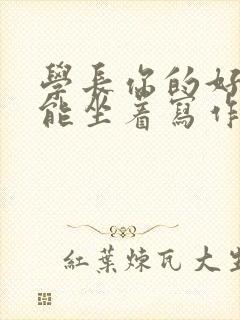 學長你的好
能坐着寫作
紅葉煉瓦大生